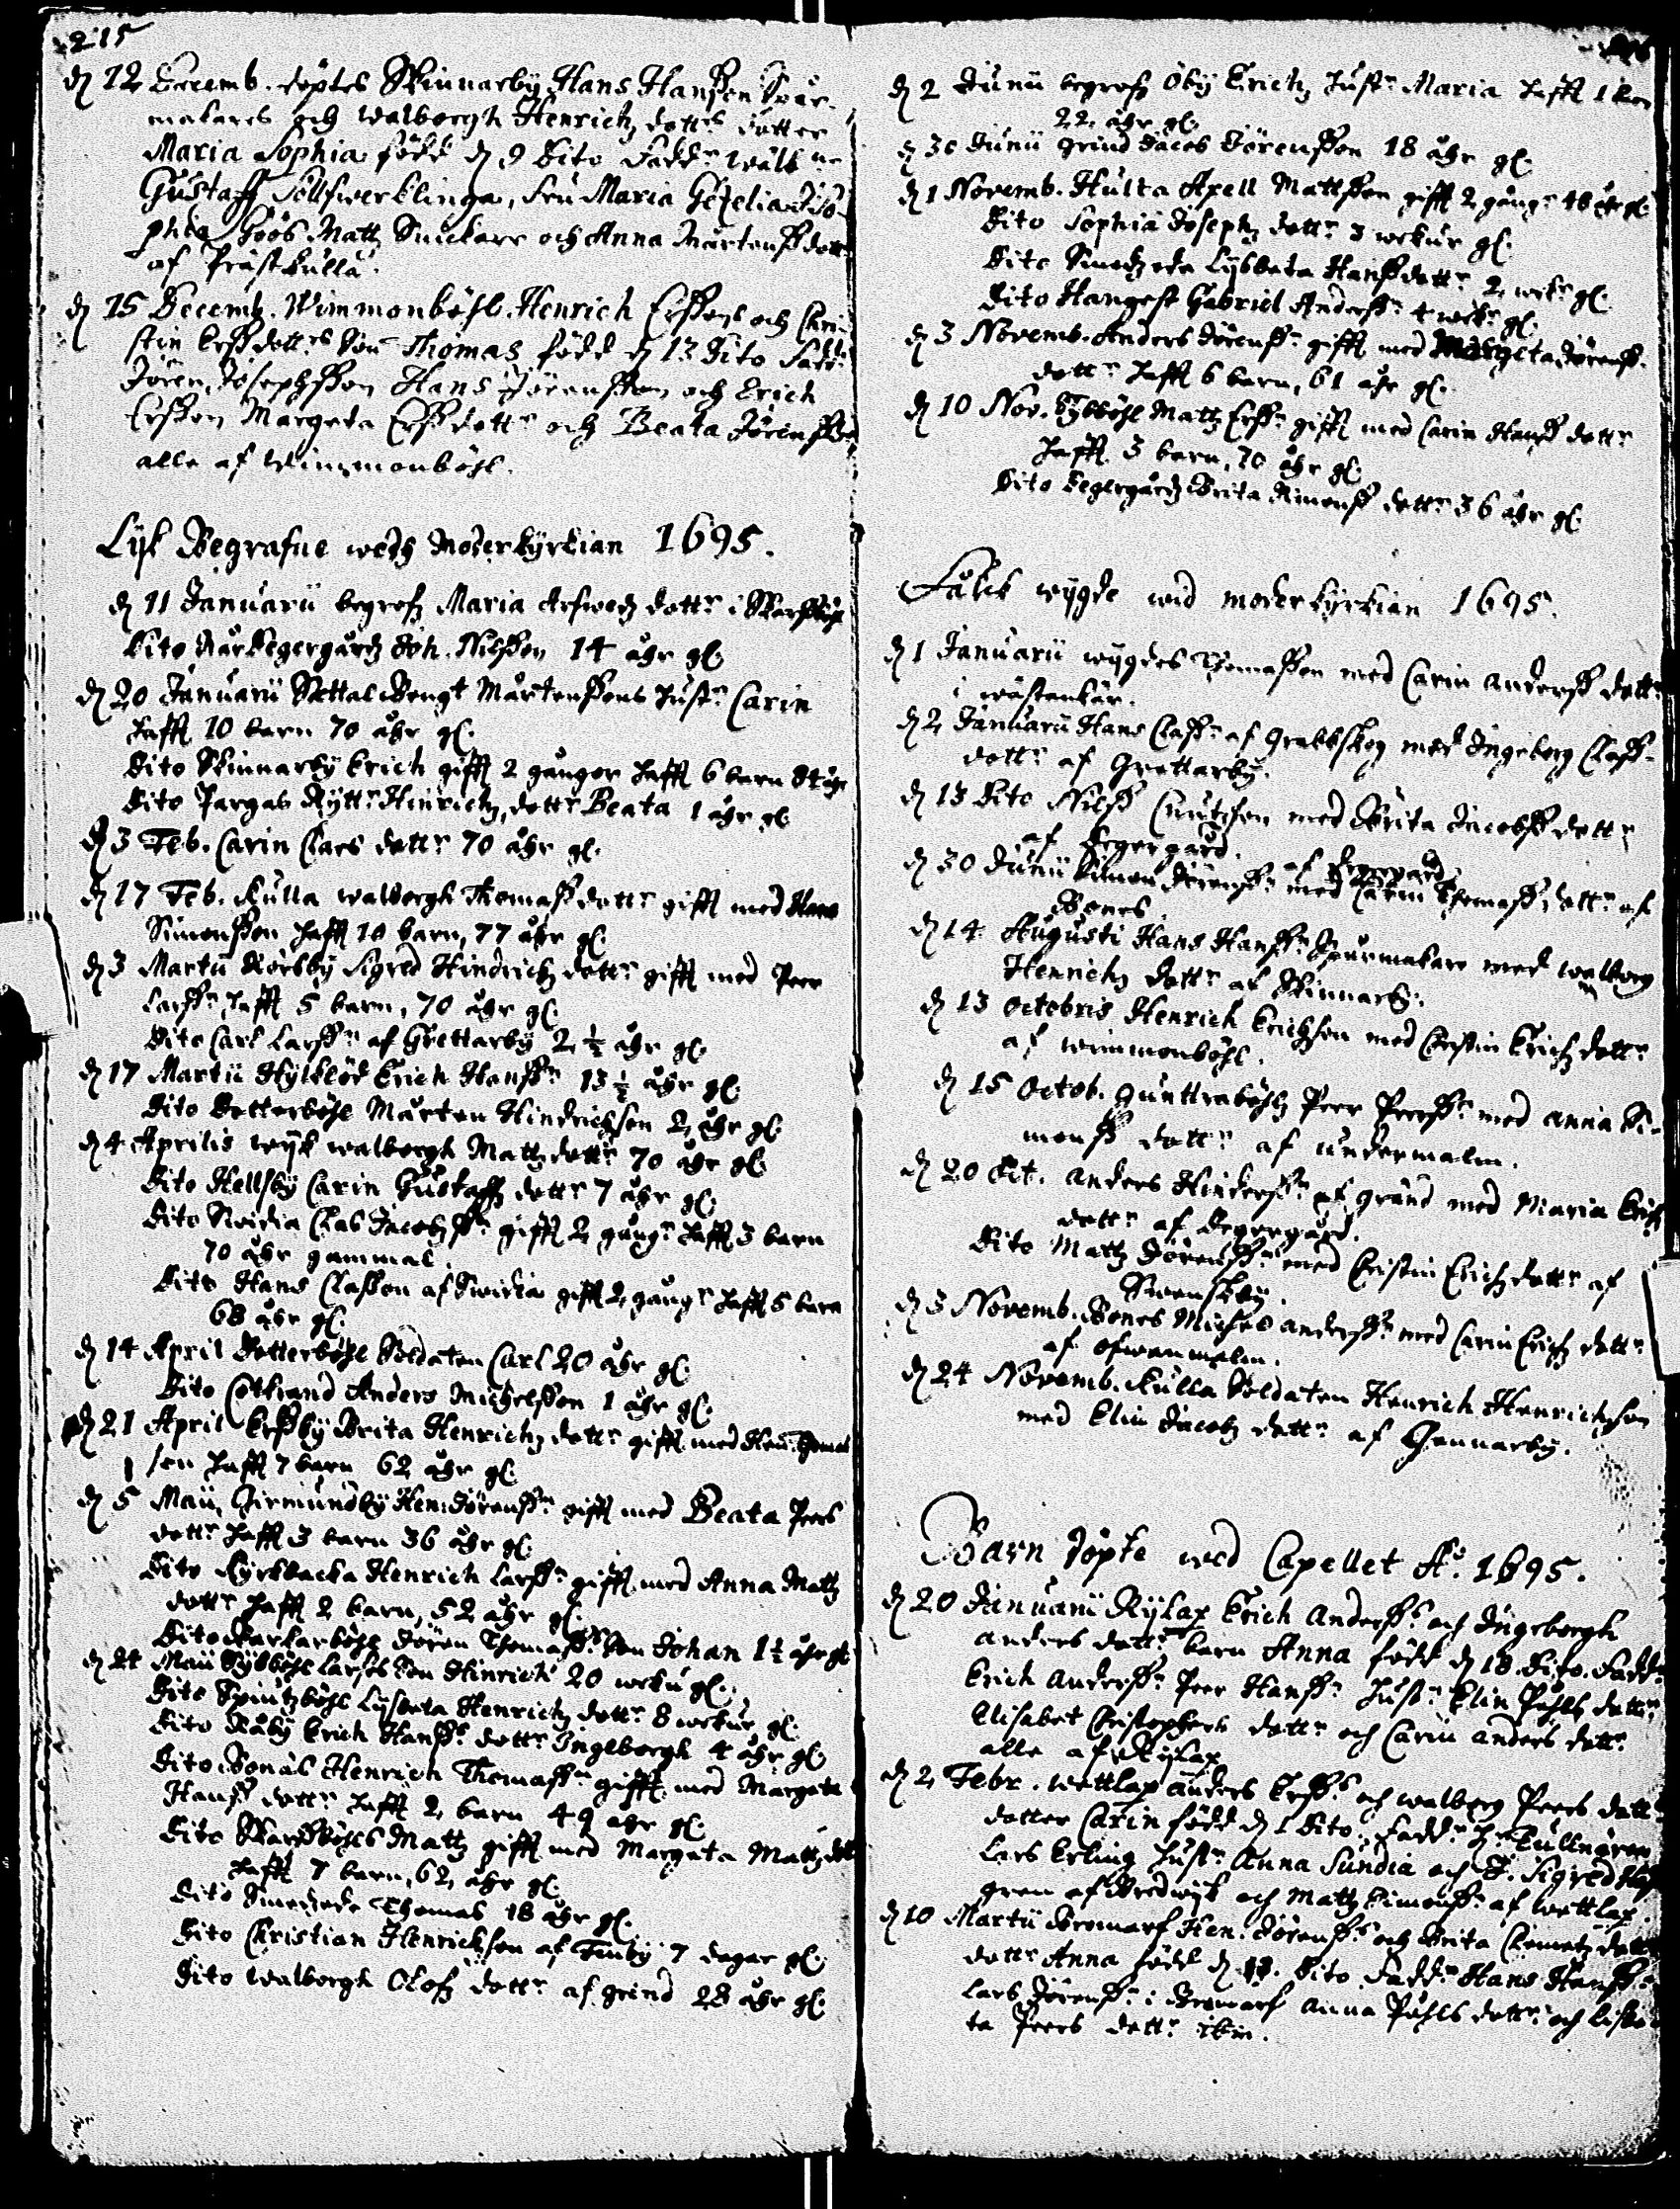 215
d 12 Decemb. döptes Skinnarby Hans Hanßon Spor-
makares och Walborgh Henrichz dotters dotter
Maria Sophia född d 9 Dito Faddr Wälb
Gustaff Sölfwerklinga, Fru Maria Gezelia So-
phia Göös Matz Snickare och Anna Mårtenßdotr
af Prästkulla.
d 15 Decemb. Wimmonböhl Henrich Erßons och Chri-
stin Erßdottrs Son Thomas född d 13 Dito Faddr
Jören Josephßon Hans Jörenßon och Erich
Erßon Margeta Erßdottr och Beata Jörenßdr
alle af Wimmonböhl.
Lijk Begrafne wedh Moderkyrkian 1695.
d 11 Januarii begrofz Maria Arfwedz dottr i Skarsböhl
Dito Degergårdz Joh. Nilßon 14 åhr gl.
d 20 Januarii Bengt Mårtenßons hustr Carin
hafft 10 barn 70 åhr gl.
Dito Skinnarby Erich gifft 2 gånger hafft 6 barn 84 åhr
Dito Pargas Ryttr Hinrichz dottr Beata 1 åhr gl
d 3 Feb. Carin Claes dottr 70 åhr gl.
d 17 Feb. Kulla Walborgh Thomaßdottr gifft med Hans
Simonßon hafft 10 barn, 77 åhr gl.
d 3 Martii Rörsby Sigred Hindrichz dottr gifft med Peer
Larßr hafft 5 barn, 70 åhr gl.
Dito Carl Larßr af Grettarby 2 1/2 åhr gl.
d 17 Martii Hylklöd Erich Hanßr 13 1/2 åhr gl.
Dito Dotterböhl Mårten Hindrichson 2 åhr gl.
d 4 Aprilis Wijk Walborgh Matz dottr 70 åhr gl.
Dito Hellsby Carin Gustaffz dottr 7 åhr gl.
Dito Clas Jacobßr gifft 2 gångr hafft 3 barn
70 åhr gammal.
Dito Hans Claßon af gifft 2 gångr hafft 5 barn
68 åhr gl.
d 14 April Dotterböhl Soldaten Carl 20 åhr gl.
Dito Anders Michelßon 1 åhr gl.
d 21 April Erßby Brita Henrichz dottr gifft med Hen: Thomas
son hafft 7 barn 62 åhr gl.
d 5 Maii, Germundby Hen: Jörenßr gifft med Beata Peers
dottr hafft 3 barn 36 åhr gl.
Dito Kyrkbacka Henrich Larßr gifft med Anna Matz
dottr hafft 2 barn, 52 åhr gl.
Dito Jören Thomaßrs Son Johan 1 1/2 åhr gl
d 24 Maii Sybböhl Larses Son Hinrich 20 weku gl.
Dito Spintzböhl Lysbeta Henrichz dottr 8 wekur gl.
Dito Råby Erich Hanßrs dottr Ingeborgh 4 åhr gl.
Dito Bonäs Henrich Thomaßr gifft med Margeta
Hanß dottr hafft 2 barn 49 åhr gl.
Dito Skarsböhls Matz gifft med Margeta Matz dotr
hafft 7 barn, 62 åhr gl.
Dito Smedzede Thomas 18 åhr gl.
Dito Christian Henrichson af Finby 7 dagar gl.
Dito Walborgh Olofz dottr af grind 28 åhr gl.
d 2 Junii begrofz Öby Erichz hustr Maria hafft 1 barn
22 åhr gl.
d 30 Junii grind Jacob Jörenßon 18 åhr gl.
d 1 Novemb. Hulta Axell Mattßon gifft 2 gångr 48 åhr gl.
Dito Sophia Josephz dottr 3 wekur gl.
Dito Smedzede Lysbeta Hanßdottr 2 wekr gl.
Dito Hangest Gabriel Anderßr 4 wekr gl.
d 3 Novemb. Anders Jörenßr gifft med Margeta Jörenß-
dottr hafft 6 barn, 61 åhr gl.
d 10 Nov. Sybböhl Matz Erßr gifft med Carin Hanß dottr
hafft 3 barn, 70 åhr gl.
Dito Degergårdz Brita Simonß dottr 36 åhr gl.
Fålck wygde wid moderkyrkian 1695.
d 1 Januarii wygdes Thomaßon med Carin Anderß dottr
i Wästankär.
d 2 Januarii Hans Claßr af Grabbskog med Ingeborg Claß-
dottr af Grettarby.
d 13 Dito Nilß Cnutson med Brita Jacobß dottr
af Degergård.
af Degergård
d 30 Junii Simon Jörenßr med Carin Thomaßdottr af
Bones.
d 14 Augusti Hans Hanßr Spormakare med Walborg
Henrichz dottr af Skinnarby.
d 13 Octobris Henrich Erichson med Christin Erichz dottr
af Wimmonböhl.
d 15 Octob. Gunttraböhlz Peer Peerßr med Anna Si-
monß dottr af undermalm.
d 20 Oct. Anders Hinderßr af Gränd med Maria Erich
dottr af Degergård.
Dito Matz Jörenßr med Cristin Erichz dottr af
Swenskby.
d 3 Novemb. Bones Michel Anderßr med Carin Erichz dottr
af ofwanmalm.
d 24 Novemb. Kulla Soldaten Henrich Henrichson
med Elin Jacobz dottr af Gennarby.
Barn döpte wed Capellet Ao. 1695.
d 20 Januarii Rylax Erich Anderßs och Ingeborgh
Anders dottrs barn Anna född d 18 Dito. Faddr
Erich Anderßr Peer Hanßr hustr Elin Påhls dottr
Elisabet Christophers dottr och Carin Anders dottr
alle af Rylax
d 2 Febr. Wettlax Anders Erßs och Walborg Peers dottrs
dotter Carin född d 1 Dito. Faddr Hr Tullnären
Lars Erling hustr Anna Sundia och J. Sigred
gren af Bredwijk och Matz Simonßr af Wettlax.
d 10 Martii Bromarf Hen: Jörenßs och Brita Clemetz dottrs
dottr Anna född d Dito Faddr Hans Hanßr
Lars Jörenßr i Bromarf Anna Påhls dottr och Lisbe-
ta Peers dottr ibm.